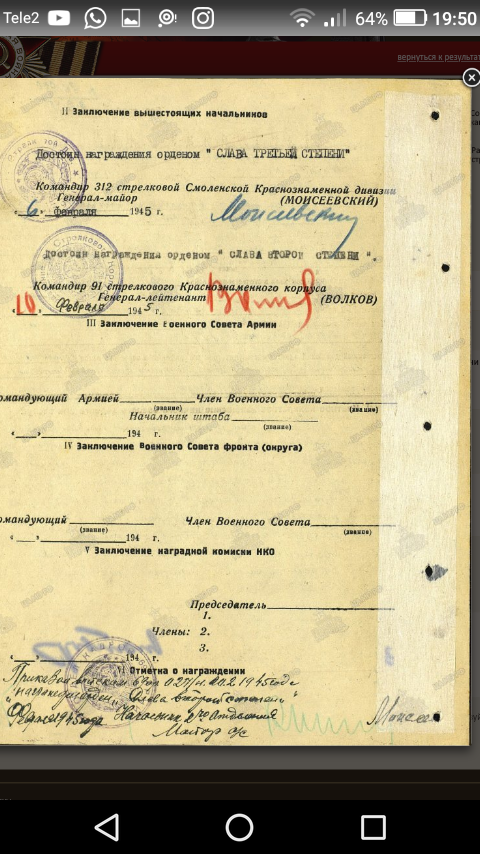 Tele2 64% 19:50
вернуться к результат
II Заключение вышестоящих начальников
Достоин награждения орденом " СЛАВА ТРЕТЬЕЙ СТЕПЕНИ"
Командир 312 стрелковой Смоленской Краснознаменной дивизии
Генерал-майор (МОИСЕЕВСКИЙ)
„ 6 „ февраля 1945 г.
Достоин награждения орденом " СЛАВА ВТОРОЙ СТЕПЕНИ ".
Командир 91 стрелкового Краснознаменного корпуса
Генерал-лейтенант (ВОЛКОВ)
„10„ Февраля 1945 г.
III Заключение Военного Совета Армии
омандующий Армией Член Военного Совета
(звание) (звание)
Начальник штаба
(звание)
„ „ 194 г.
IV Заключение Военного Совета фронта (округа)
омандующий Член Военного Совета
(звание) (звание)
„ „ 194 г.
V Заключение наградной комиски НКО
Председатель
1.
Члены: 2.
3.
„ „ 194 г.
VI Отметка о награждении
Приказом войскам 1945 года
награжден "Слава второй степени"
1945 года Начальник 2го отделения
Майор а/с